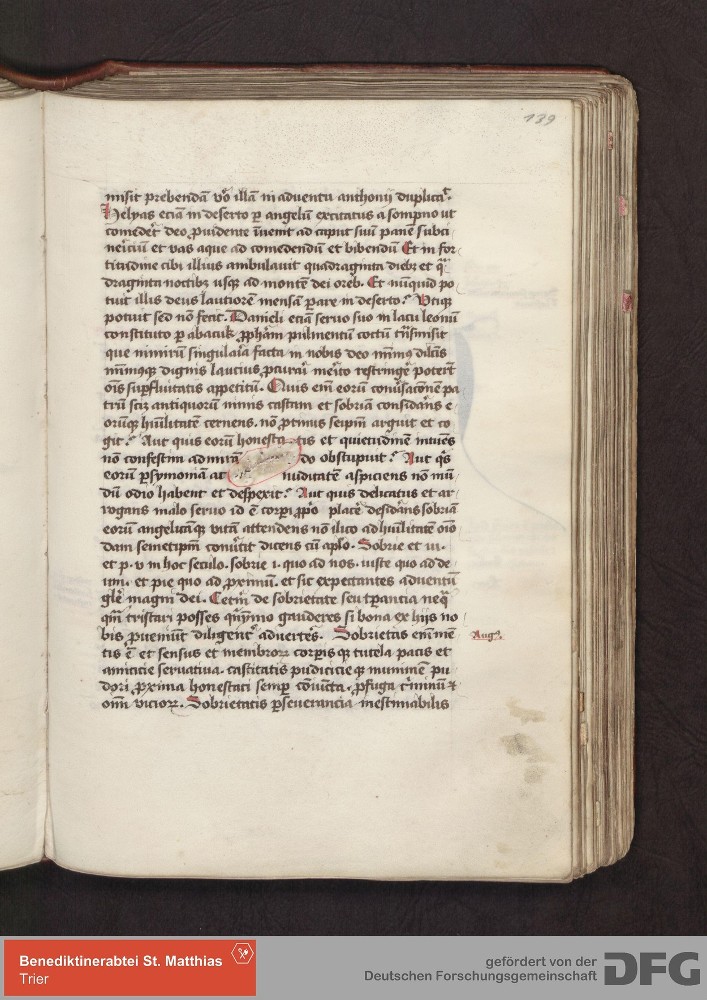 139
misit prebendā vo᷒ illā in aduentu anthonij duplicat᷒.
Helyas eciā in deserto ꝑ angelū excitatus a sompno ut
comedet᷒ deo ꝓuidente īuenit ad caput suū panē subci
nericiū et vas aque ad comedendū et bibendū Et in for
titudine cibi illius ambulauit quadraginta diebꝫ et q̄
draginta noctibꝫ usqꝫ ad montē dei oreb. Et nūquid po
tuit illis deus lautiorē mensā ꝑare in deserto? Vtiqꝫ
potuit sed nō fecit. Danieli eciā seruo suo in lacu leonū
constituto ꝑ abacuk ꝓphām pulmentū coctū trāsmisit
que nimirū singularia facta in nobis deo minꝰ dilcīs
minusqꝫ dignis lautius ꝓcurari merito restringe᷒ poterūt
oīs suꝑfluitatis appetitū. Quis em̄ eorū conu᷒sacōnem pa
trū scꝫ antiquorū nimis castam et sobriā considerās e
orūqꝫ hūilitatē cernens. nō ꝓtinus seipm̄ arguit et co
git? Aut quis eorū honesta tis et quietudinē intuēs
nō confestim admirā do obstupuit? Aut qͥs
eorū ꝑsymoniam ac nuditatē aspiciens nō mū
dū odio habent et despexit? Aut quis delicatus et ar
rogans malo seruo id ē corꝑi ꝓpͥo place᷒ desiderās sobriā
eorū angelicāqꝫ vitā attendens nō ilico ad hūilitatē oīo
dam semetipm̄ conu᷒tit dicens cū aplo. Sobrie et iu.
et p. v in hoc seculo. sobrie .i. quo ad nos. iuste quo ad de
um. et pie quo ad ꝓximū. et sic expectantes aduentū
gle᷒ magni dei. Cete᷒m de sobrietate seu tꝑantia neqͣ
qͣm tristari posses quinymo gauderes si bona ex hijs no
bis ꝓueniūt diligent᷒ aduertēs. Sobrietas em̄ mē
Augꝰ.
tis ē et sensus et membroꝝ corꝑis qꝫ tutela pacis et
amicicie seruatiua. castitatis pudicicie qꝫ munimē pu
dori ꝓxima honestati semꝑ cōiuncta. ꝓfuga c᷒minū et
oīm vicioꝝ. Sobrietatis ꝑseuerancia inestimabilis
Benediktinerabtei St. Matthias
Trier
gefördert von der
Deutschen Forschungsgemeinschaft
DFG